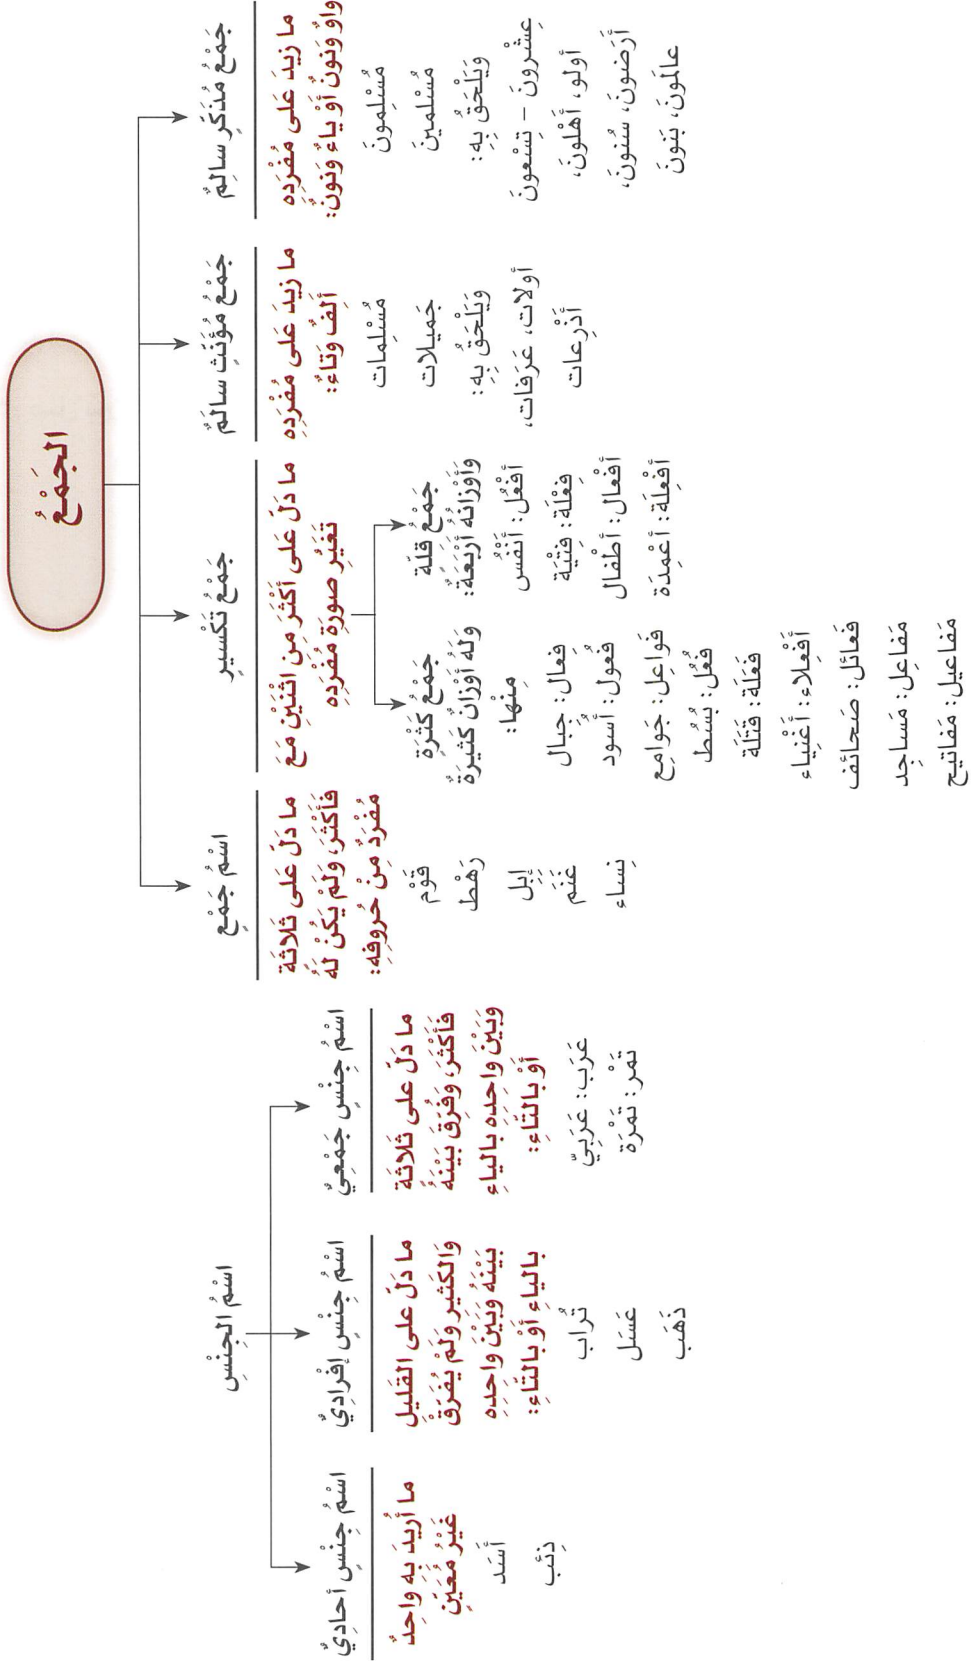 الجَمْعُ
جَمْعُ مُذَكَّرٍ سالِمٌ
ما زيدَ عَلى مُفْرَدِهِ
واوٌ وَنونٌ أَوْ ياءٌ وَنونٌ:
مُسْلِمونَ
مُسْلِمينَ
وَيَلْحَقُ بِهِ:
عِشْرونَ – تِسْعونَ
أولو، أَهْلونَ،
أَرَضونَ، سُنونَ،
عالَمونَ، بَنونَ
جَمْعُ مُؤَنَّثٍ سالِمٌ
ما زيدَ عَلى مُفْرَدِهِ
أَلِفٌ وَتاءٌ:
مُسْلِمات
جَميلات
وَيَلْحَقُ بِهِ:
أولات، عَرَفات،
أَذْرِعات
جَمْعُ تَكْسيرٍ
ما دَلَّ عَلى أَكْثَرَ مِن اثْنَيْنِ مَعَ
تَغَيُّرِ صورَةِ مُفْرَدِهِ
جَمْعُ قِلَّة
وَأَوْزانُهُ أَرْبَعَةٌ:
أَفْعُل: أَنْفُس
فِعْلَة: فِتْيَة
أَفْعال: أَطْفال
أَفْعِلَة: أَعْمِدَة
جَمْعُ كَثْرَةٍ
وَلَهُ أَوْزانٌ كَثيرَةٌ
مِنْها:
فِعال: جِبال
فُعول: أُسُود
فَواعِل: جَوامِع
فُعُل: بُسُط
فَعَلَة: قَتَلَة
أَفْعِلاء: أَغْنِياء
فَعائل: صَحائف
مَفاعِل: مَساجِد
مَفاعيل: مَفاتيح
اسْمُ جَمْعٍ
ما دَلَّ عَلى ثَلاثَة
فَأَكْثَرَ، وَلَمْ يَكُنْ لَهُ
مُفْرَدٌ مِنْ حُروفِهِ:
قَوْم
رَهْط
إِبِل
غَنَم
نِساء
اسْمُ الجِنْسِ
اسْمُ جِنْسٍ جَمْعِيٌّ
ما دَلَّ عَلى ثَلاثَة
فَأَكْثَرَ، وَفُرِّقَ بَيْنَهُ
وَبَيْنَ واحِدِهِ بِالياءِ
أَوْ بِالتّاءِ:
عَرَب: عَرَبِيّ
تَمْر: تَمْرَة
اسْمُ جِنْسٍ إِفْرادِيٌّ
ما دَلَّ عَلى القَليلِ
وَالكَثيرِ وَلَمْ يُفَرَّقْ
بَيْنَهُ وَبَيْنَ واحِدِهِ
بِالياءِ أَوْ بِالتّاءِ:
تُراب
عَسَل
ذَهَب
اسْمُ جِنْسٍ أُحادِيٌّ
ما أُريدَ بِهِ واحِدٌ
غَيْرُ مُعَيَّنٍ
أَسَد
ذِئب